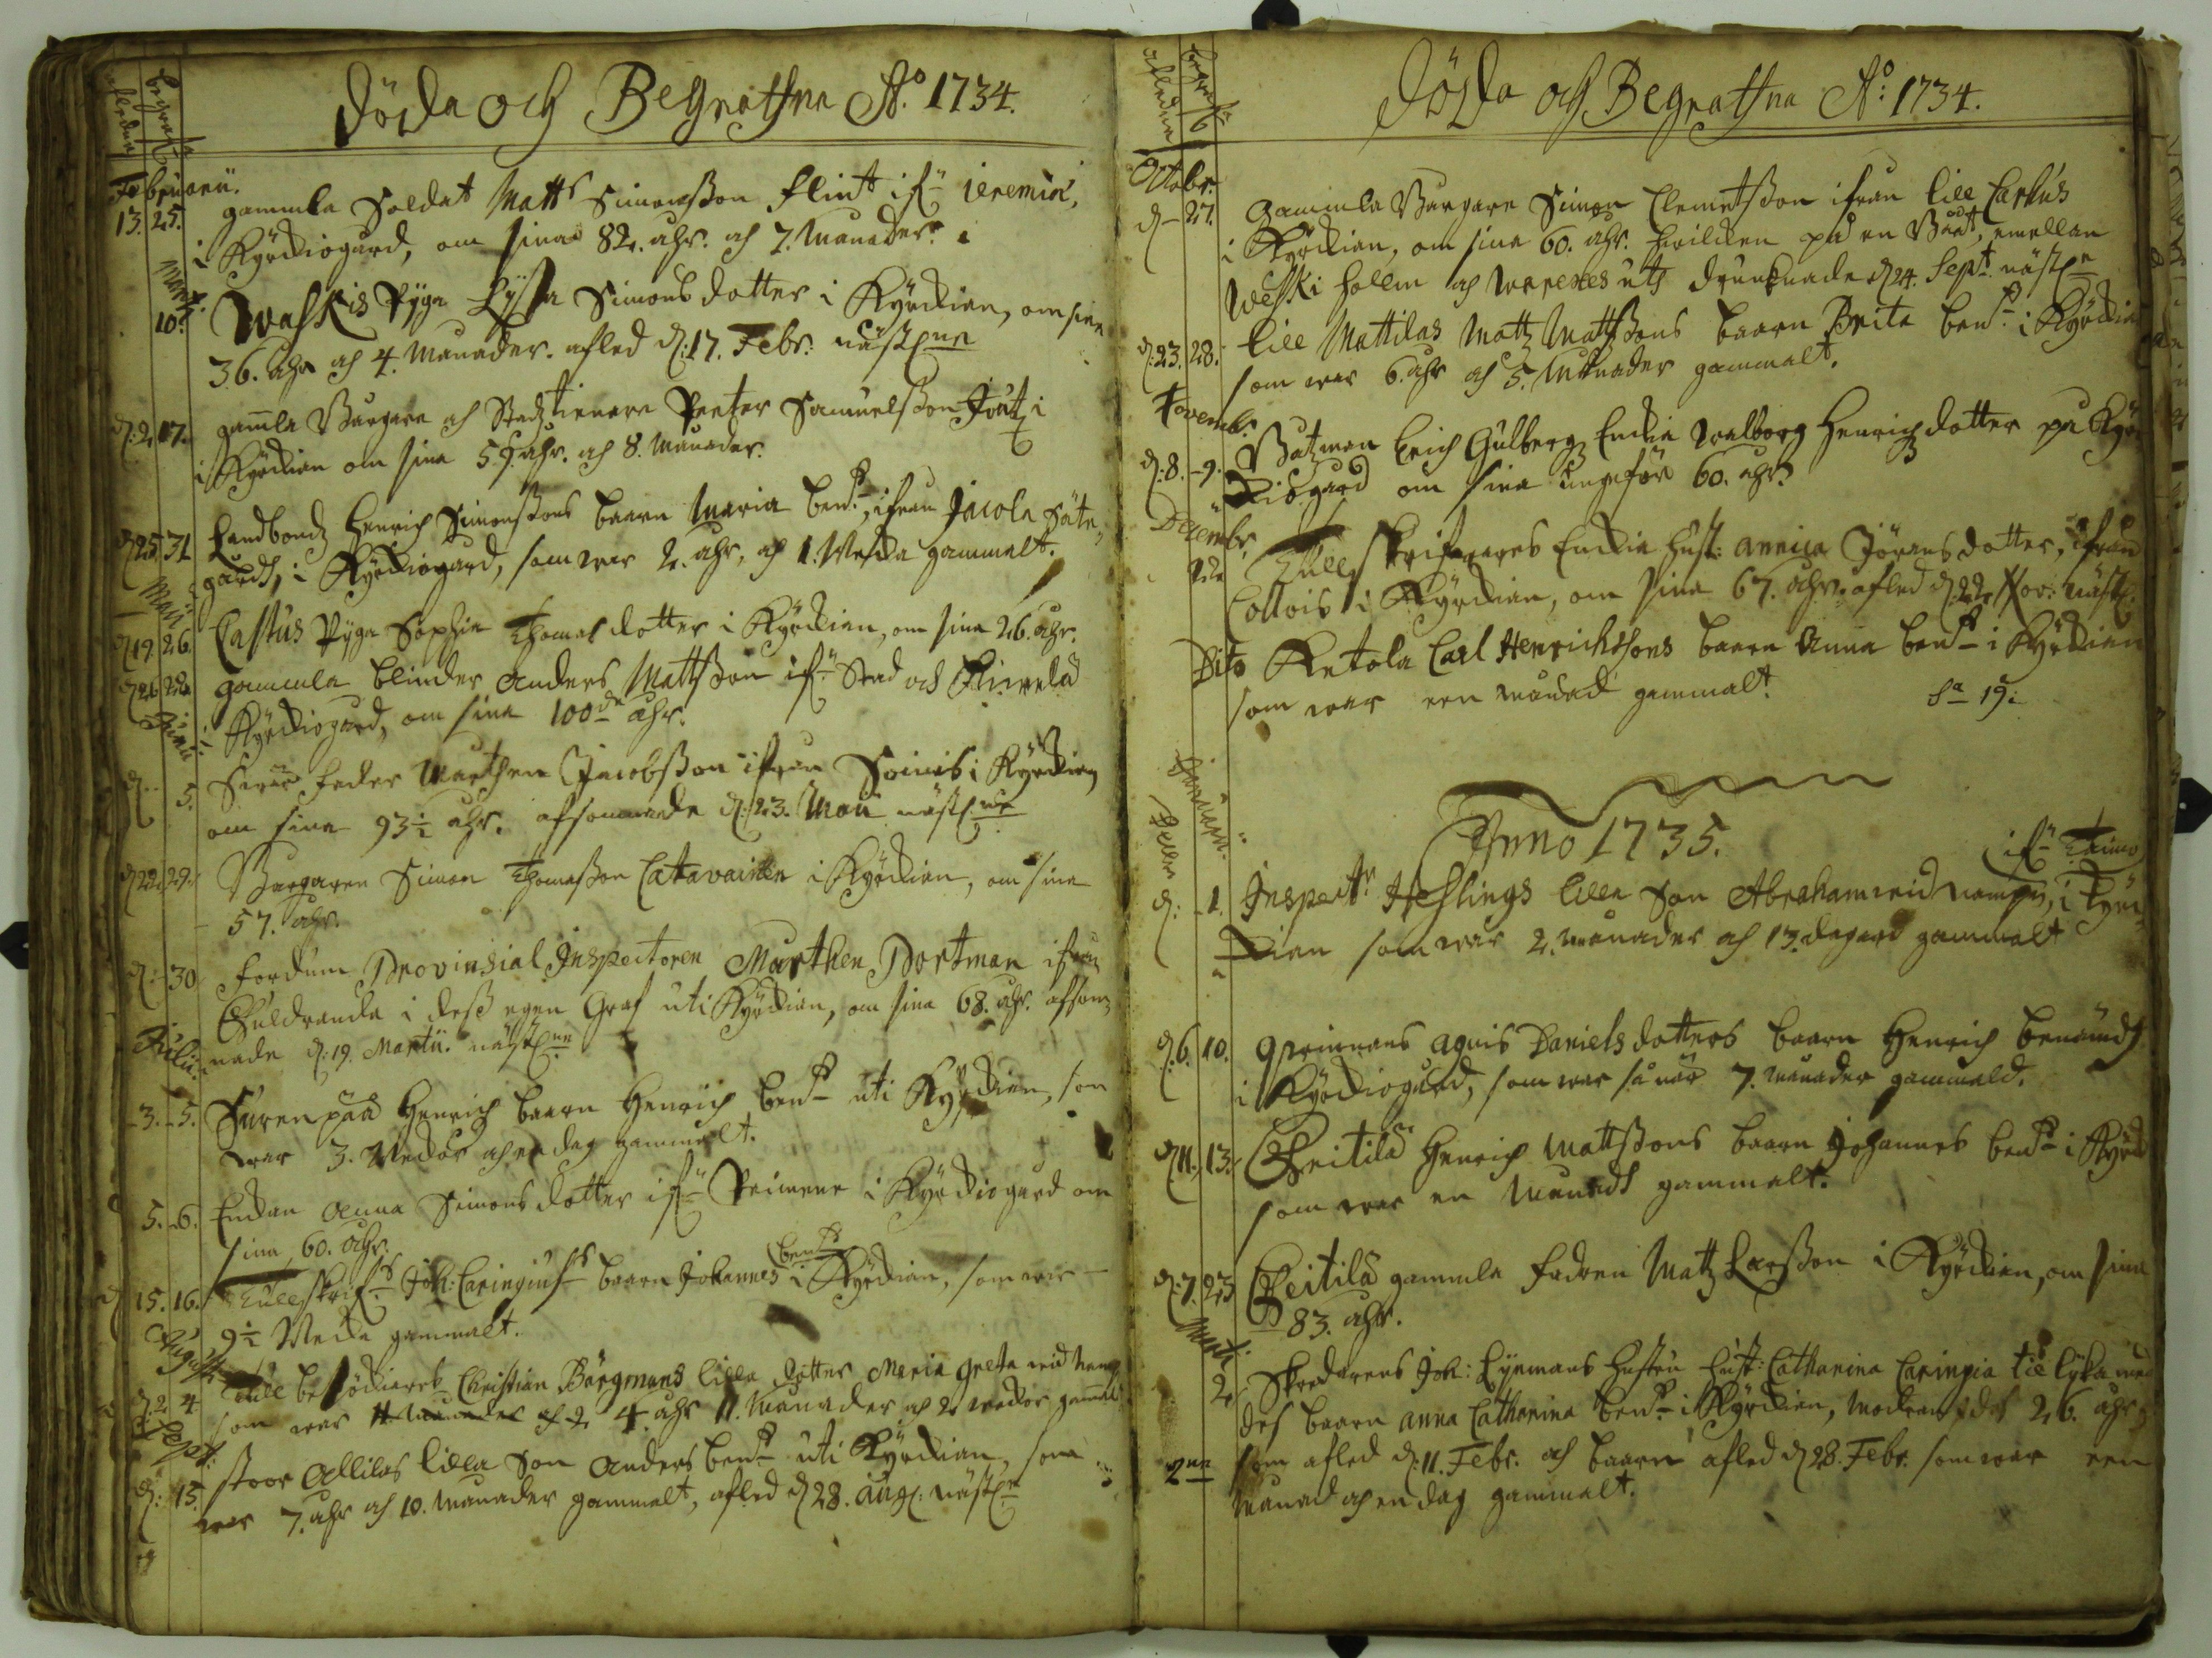 Döda och Begrafna A:o 1734.
afledne
begrafne
Februarii.
13. 25. gammla Soldat Matts Simonsson Flint ifr: ieremis,
i Kyrckiogård, om sina 82. åhr. och 7. Månader.
Martii.
10. Waskis Pyga Lysa Simonsdotter i Kyrckian, om sine
36. åhr och 4. Månader. afled d: 17. Febr: nästl:ne
d: 2. 17. gamla Borgare och Stadztienare Peter Samuelsson i
i Kyrckian om sina 59. åhr. och 8. Månader.
d 25. 31. Landbondz Henrich Simonssons baarn Maria ben:d, ifrån Jacola Säte,
gård, i Kyrckiogård, som war 2. åhr, och 1. Wecka gammalt.
Maii
d 19. 26. Castus Pyga Sophia Thomasdotter i Kyrckian, om sine 26. åhr.
gammla blinder Anders Mattsson ifr: Stad och
Junii
i Kyrckiogård, om sina 100:de åhr.
d: 5. fader Marthen Jacobsson ifrån Soinis i Kyrckian
om sina 93½ åhr. afsomnade d: 23. Maii nästl:ne
d 22. 29. Borgaren Simon Thomasson Catavainen i Kyrckian, om sine
57. åhr.
d: 30. fordum Provinsial Inspectoren Marthen Dortman ifrån
Culdranda i dess egen Graf uti Kyrckian, om sina 68. åhr. afsom,
Julii. nade d: 19. Martii. nästl:ne
3. 5. Surenpää Henrich baarn Henrich ben:d uti Kyrckian, som
war 3. Weckor och en dag gammalt.
5. 6. Enckan Anna Simonsdotter ifr: Peimene i Kyrckiogård om
sina 60. åhr.
ben:d
d 15. 16. Tullskrif:s Joh: Caringius baarn Johannes i Kyrckian, som war
9½ Wecka gammalt.
Augusti
d: 2. 4. Tull besökiares Christian Bärgmans lilla dotter Maria Greta wid namn
som war 11 Månader och 2 4. åhr 11. Månader och 2 weckor gammal
Sept:
d: 15. Stoor Allilas lilla Son Anders ben:d uti Kyrckian, som
war 7. åhr och 10. Månader gammalt, afled d 28. Aug: nästl:ne
Döda och Begrafna A:o 1734.
afledne
begrafne
Octobr:
d 27. Gammla Borgare Simon Clemetsson ifrån lill Carkus
i Kyrckian, om sine 60. åhr. hwilcken på en Båt, emellan
Weski holm och utj drunknade d 24. Sept: nästl:ne
d: 23. 28. Lill Mattilas Mattz Mattssons baarn Brita ben:d i Kyrckian
som war 6. åhr och 5. Månader gammalt.
Novembr.
d: 8. 9. Båtzman Erich Gulberg Enckia Walborg Henrichzdotter på Kyr
ckiogård om sine ungefär 60. åhr.
Decembr.
22 Tullskrifwares Enckia hust: Annica Jöransdotter, ifrån
Collois i Kyrckian, om sina 67. åhr. afled d: 22 Nov: nästl:
Dito Ketola Carl Henrichssons baarn Anna ben:d i Kyrckian
som war een månad gammalt.
S:a 19:
Anno 1735.
Januarii
ifr: Taimo
d: 1. Inspect:r Heslings lilla Son Abraham wid nampn, i Kyrc
kian som war 2. månader och 13. dagar gammalt
d: 6. 10. Agnis Danielsdotters baarn Henrich benämdt
i Kyrckiogård, som war så när 7. månader gammald.
d 11. 13. Cheitilä Henrich Mattssons baarn Johannes ben:d i Kyrck
som war en Månadt gammalt.
d: 7. 23. Cheitilä gammla fadren Matz Larsson i Kyrckian, om sine
83. åhr.
Martii.
2. Skredarens Joh: Lyymans hustru hust: Catharina Caringia til lyka med
des baarn Anna Catharina ben:d i Kyrckian, Modren des 26. åhr,
som afled d: 11. Febr. och baarn afled d 28. Febr. som war een
Månad och en dag gammalt.